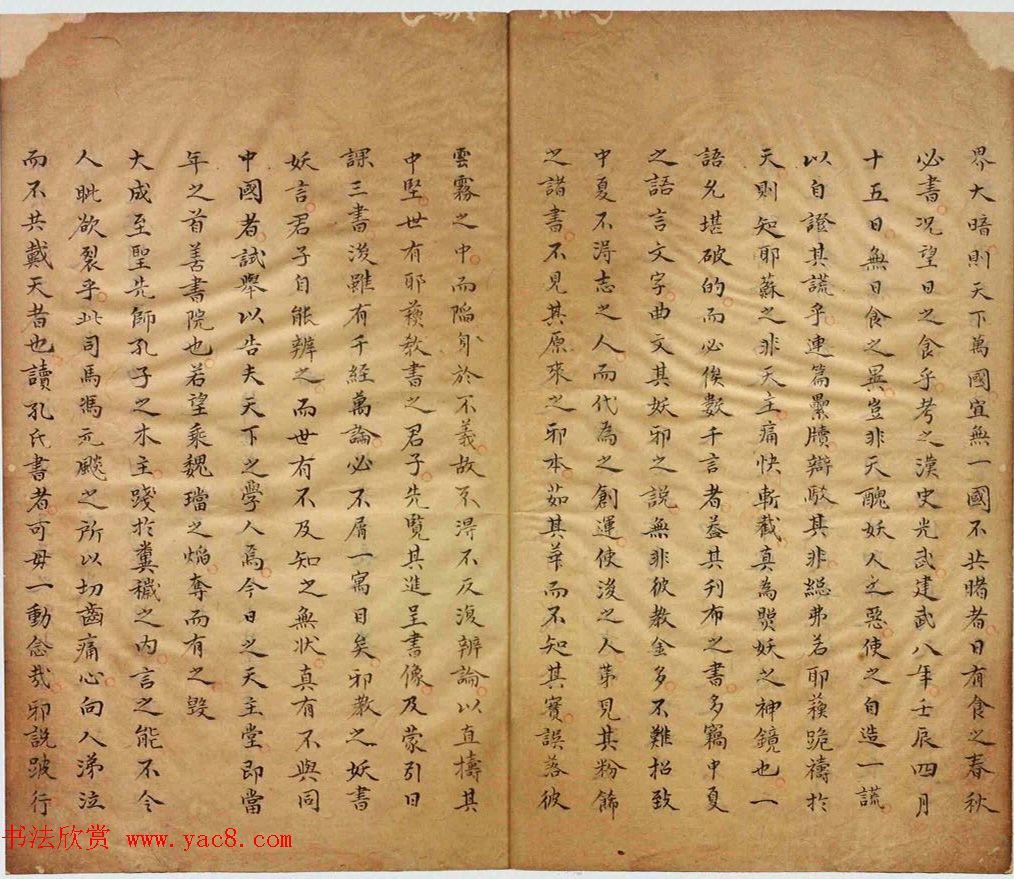 界大暗則天下萬國宜無一國不共睹者日有食之春秋
必書况望日之食乎考之漢史光武建武八年壬辰四月
十五日無日食之異豈非天醜妖人之惡使之自造一謊
以自證其謊乎連篇累牘辯駁其非總弗若耶蘓跪禱於
天則知耶蘇之非天主痛快斬截真為照妖之神鏡也一
語允堪破的而必俟數千言者葢其刊布之書多竊中夏
之語言文字曲文其妖邪之說無非彼教金多不難招致
中夏不淂志之人而代為之創運使後之人苐見其粉飾
之諸書不見其原來之邪本茹其華而不知其實誤落彼
雲霧之中而陷身於不義故不淂不反復辨論以直擣其
中堅世有耶蘓教書之君子先覽其進呈書像及蒙引日
課三書後雖有千經萬論必不屑一寓目矣邪教之妖書
妖言君子自能辨之而世有不及知之無状真有不與同
中國者試舉以告夫天下之學人焉今日之天主堂即當
年之首善書院也若望乘魏璫之焰奪而有之毀
大成至聖先師孔子之木主踐於糞穢之內言之能不令
人眦欲裂乎此司馬馮元飈之所以切齒痛心向人涕泣
而不共戴天者也讀孔氏書者可毋一動念哉邪說跛行
书法欣赏 www.yac8.com